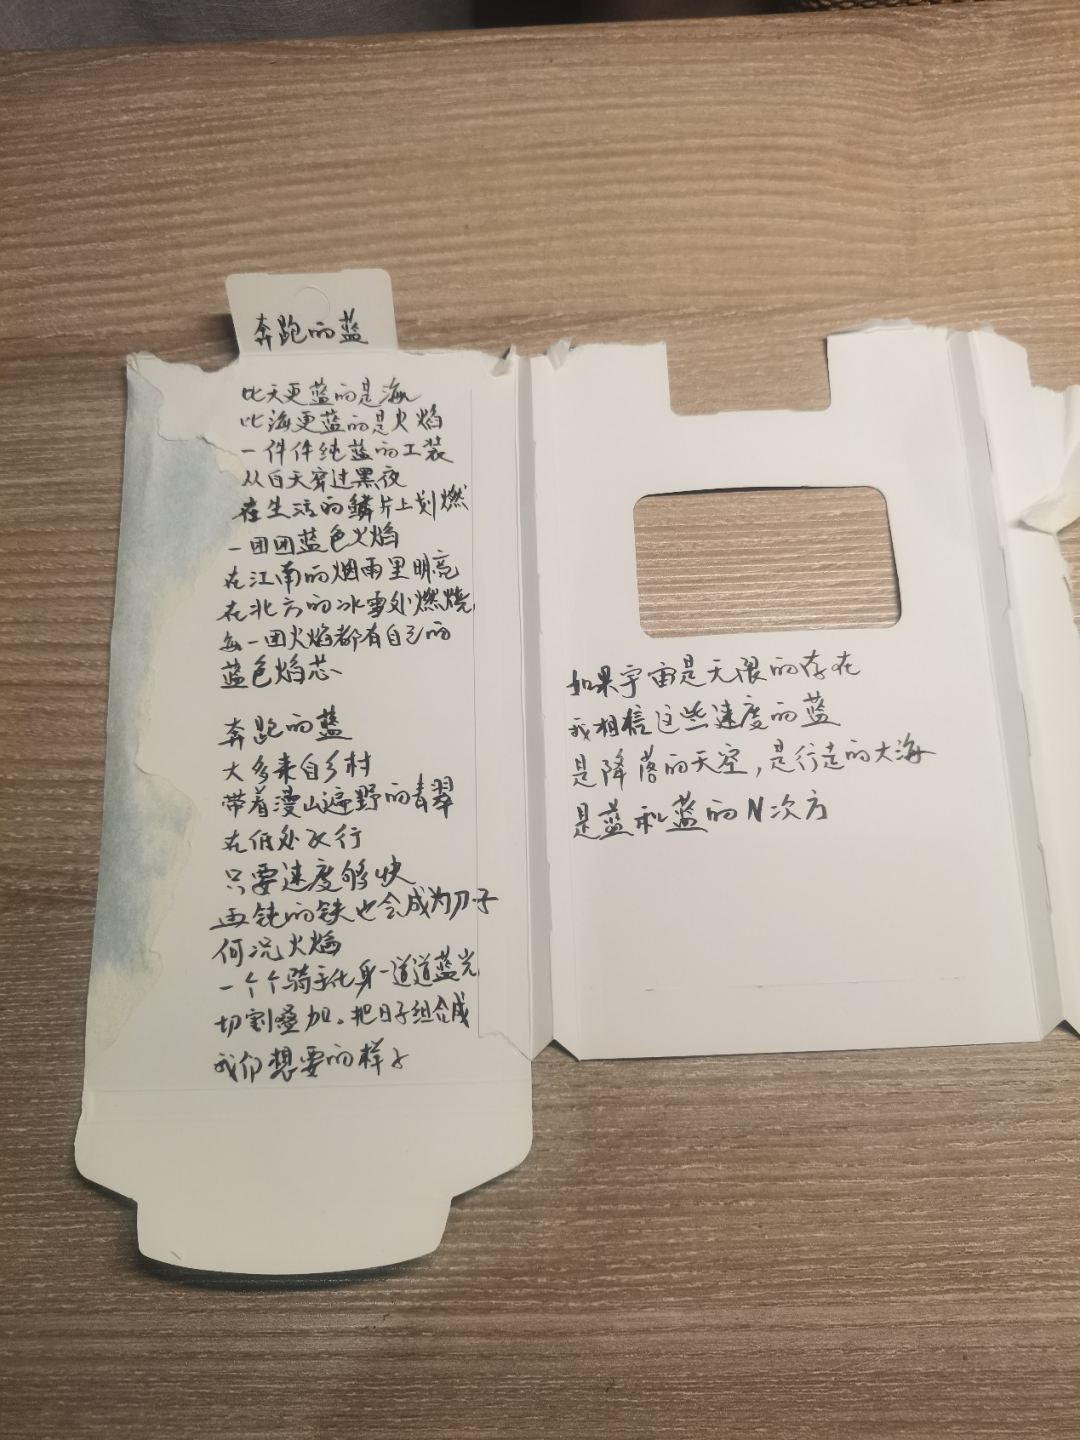 奔跑的蓝
比天更蓝的是海
比海更蓝的是火焰
一件件纯蓝的工装
从白天穿过黑夜
在生活的鳞片上划燃
一团团蓝色火焰
在江南的烟雨里明亮
在北方的冰雪处燃烧
每一团火焰都有自己的
蓝色焰芯
奔跑的蓝
大多来自乡村
带着漫山遍野的青翠
在低处飞行
只要速度够快
再钝的铁也会成为刀子
何况火焰
一个个骑手化身一道道蓝光
切割叠加。把日子组合成
我们想要的样子
如果宇宙是无限的存在
我相信这些速度的蓝
是降落的天空,是行走的大海
是蓝和蓝的N次方